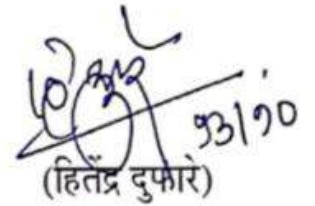 १३/१०
(हितेंद्र दुफारे)